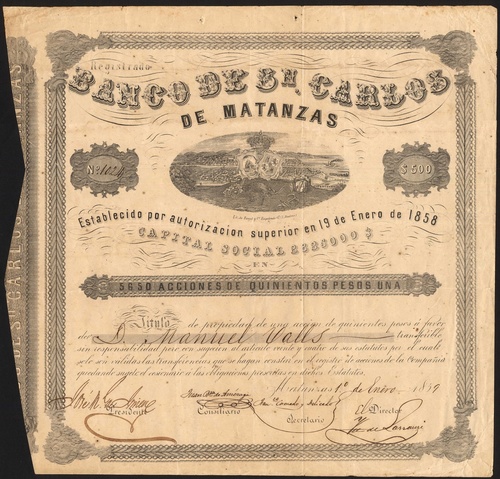 Registrado
BANCO DE Sn. CARLOS
DE MATANZAS
No. 1024
$ 500
Establecido por autorizacion superior en 19 de Enero de 1858
CAPITAL SOCIAL 2825000 $
EN
5650 ACCIONES DE QUINIENTOS PESOS UNA
Titulo de propiedad de una accion de quinientos pesos á favor
de D. Manuel Valls transferible
sin responsabilidad pero con sugecion al articulo y de sus estatutos por el cual
solo son validas las transferencias que se hagan constar en el registro de acciones de la Compañia
quedando sugeto el accionista á las prescritas en dichos Estatutos.
Matanzas 1o. de Enero 1859
Presidente
Consiliario
Secretario
El Director